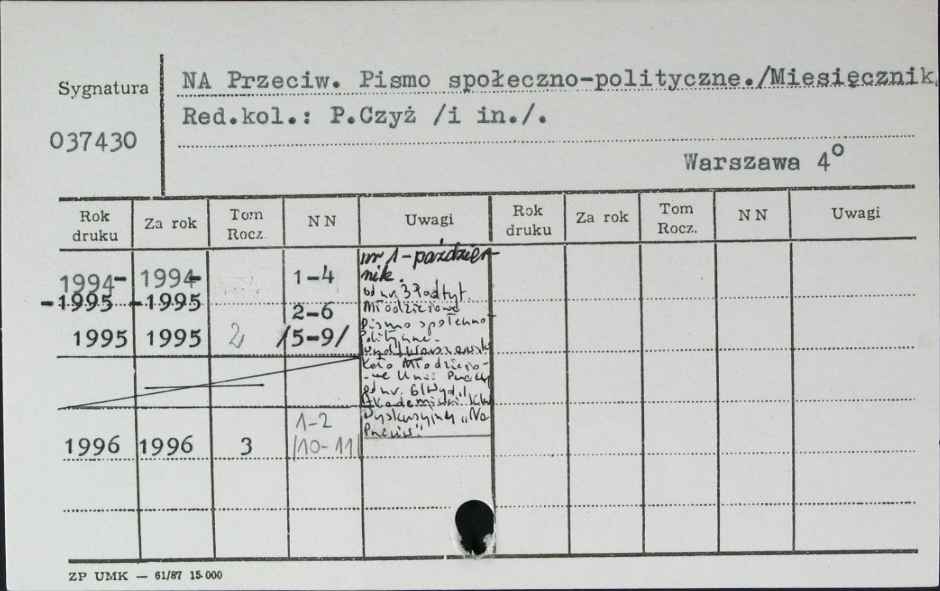 Sygnatura
037430
NA Przeciw. Pismo społeczno-polityczne./Miesięcznik.
Red.kol.: P.Czyż /i in./.
Warszawa 4°
Rok druku Za rok Tom Rocz. NN Uwagi Rok druku Za rok Tom Rocz. NN Uwagi
1994- 1994- 1-4
-1995 -1995 2-6
1995 1995 2 /5-9/
1996 1996 3 1-2
/10-11/
nr 1-paździer-
nik.
od nr.
Młodzieżowe
Pismo
Koło Młodzieżo-
-we Unii Pracy
od nr. 6
Dyskusyjny „Na
ZP UMK — 61/87 15.000